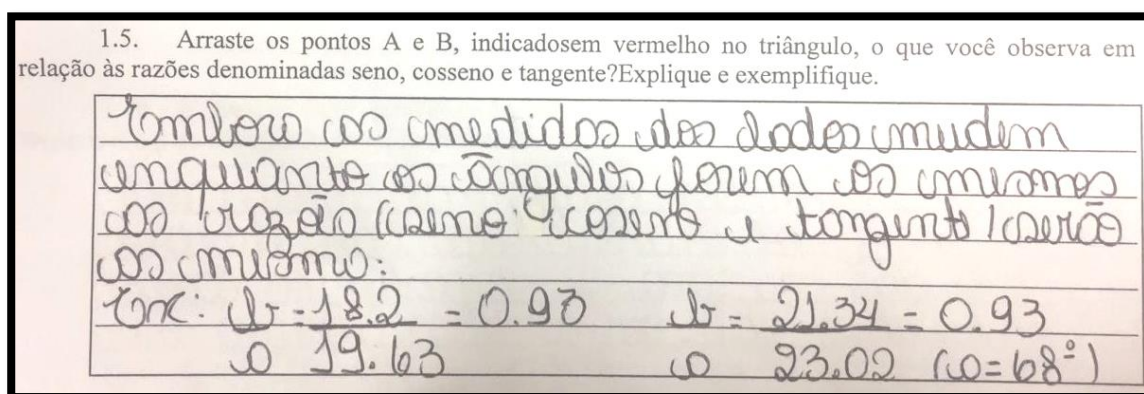 1.5. Arraste os pontos A e B, indicadosem vermelho no triângulo, o que você observa em
relação às razões denominadas seno, cosseno e tangente?Explique e exemplifique.
Embora as medidas dos lados mudem
enquanto os ângulos forem os mesmos
as razão (seno, coseno e tangente) serão
as mesmo:
Ex: b = 18.2 = 0.93 b = 21.34 = 0.93
a 19.63 a 23.02 (a=68º)